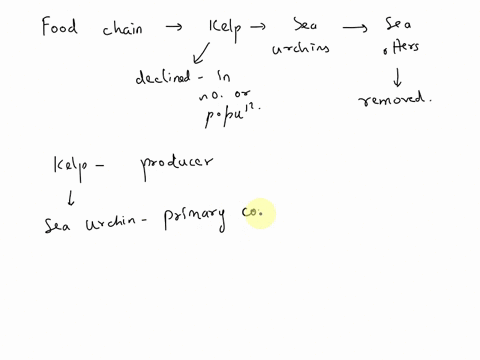 Food chain → Kelp → Sea urchins → Sea otters
declined - in no. or popuⁿ.
removed.
Kelp - producer
↓
Sea urchin - primary co.